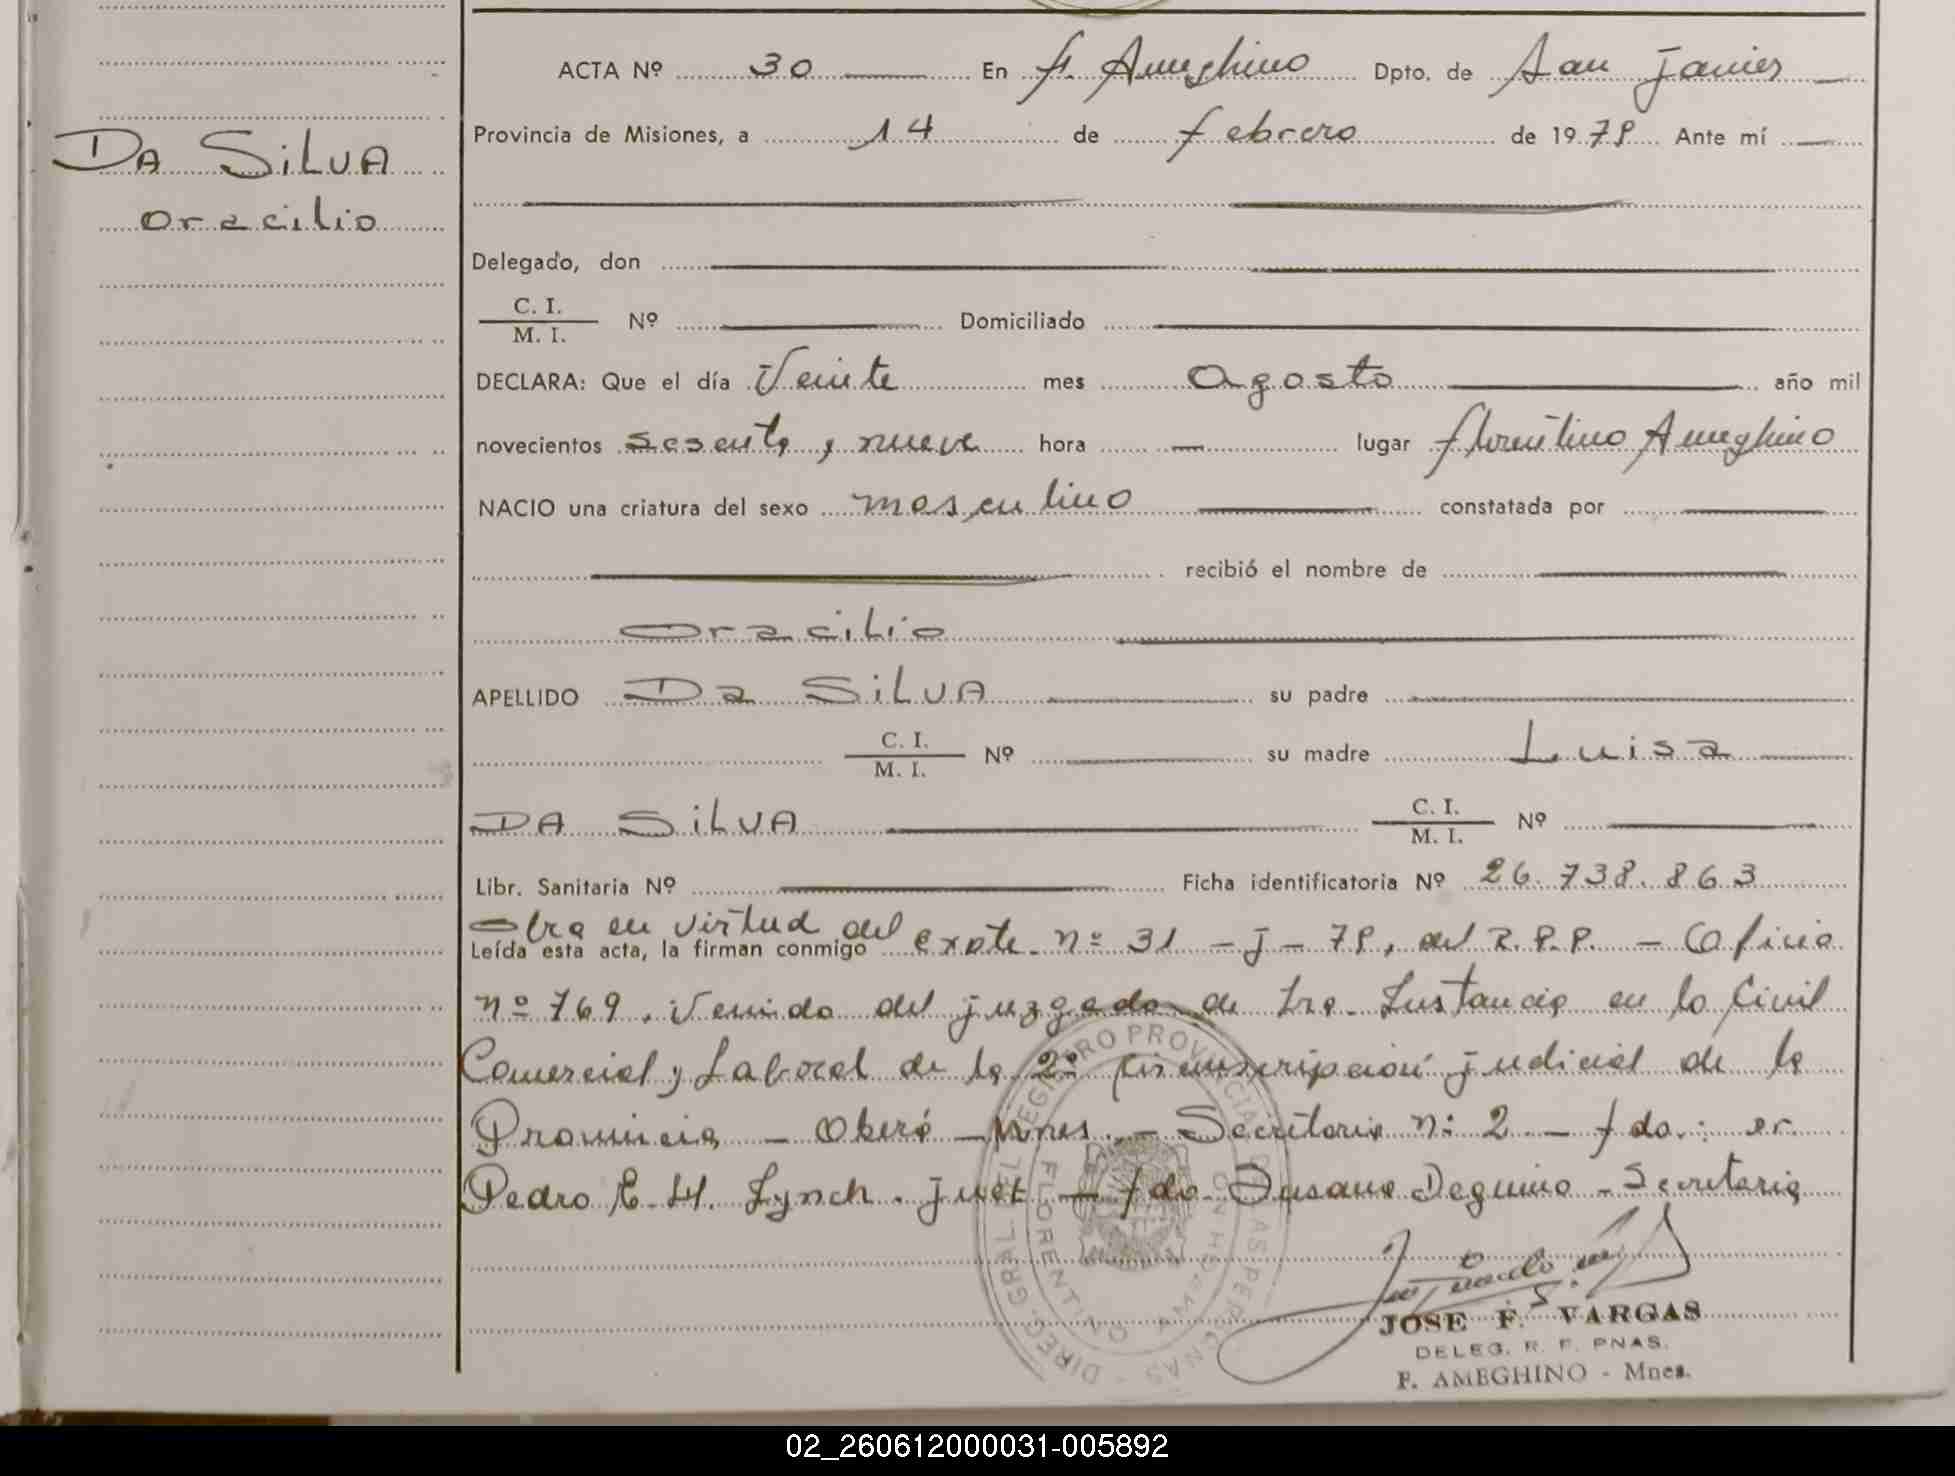 ACTA Nº 30 En F. Ameghino Dpto. de San Javier
Provincia de Misiones, a 14 de febrero de 1979 Ante mí
DA SILVA
Oracilio
Delegado, don
C. I.
M. I. Nº Domiciliado
DECLARA: Que el día Veinte mes Agosto año mil
novecientos sesenta y nueve hora lugar florentino Ameghino
NACIO una criatura del sexo masculino constatada por
recibió el nombre de
Oracilio
APELLIDO Da SILVA su padre
C. I.
M. I. Nº su madre Luisa
DA SILVA C. I.
M. I. Nº
Libr. Sanitaria Nº Ficha identificatoria Nº 26.738.863
Obra en virtud del
Leída esta acta, la firman conmigo expte. nº 31 - J - 79, del R.P.P. - Oficio
nº 769. Venido del juzgado de 1ra. Instancia en lo Civil
Comercial y Laboral de la 2º Circunscripción judicial de la
Provincia - Oberá - Mnes. - Secretaria nº 2. - fdo.: Dr.
Pedro E. H. Lynch. Juez - fdo. Susana Secretaria
DIREC. GRAL. DEL REGISTRO PROVINCIAL DE LAS PERSONAS
FLORENTINO AMEGHINO
JOSE F. VARGAS
DELEG. R. P. PNAS.
F. AMEGHINO - Mnes.
02_260612000031-005892